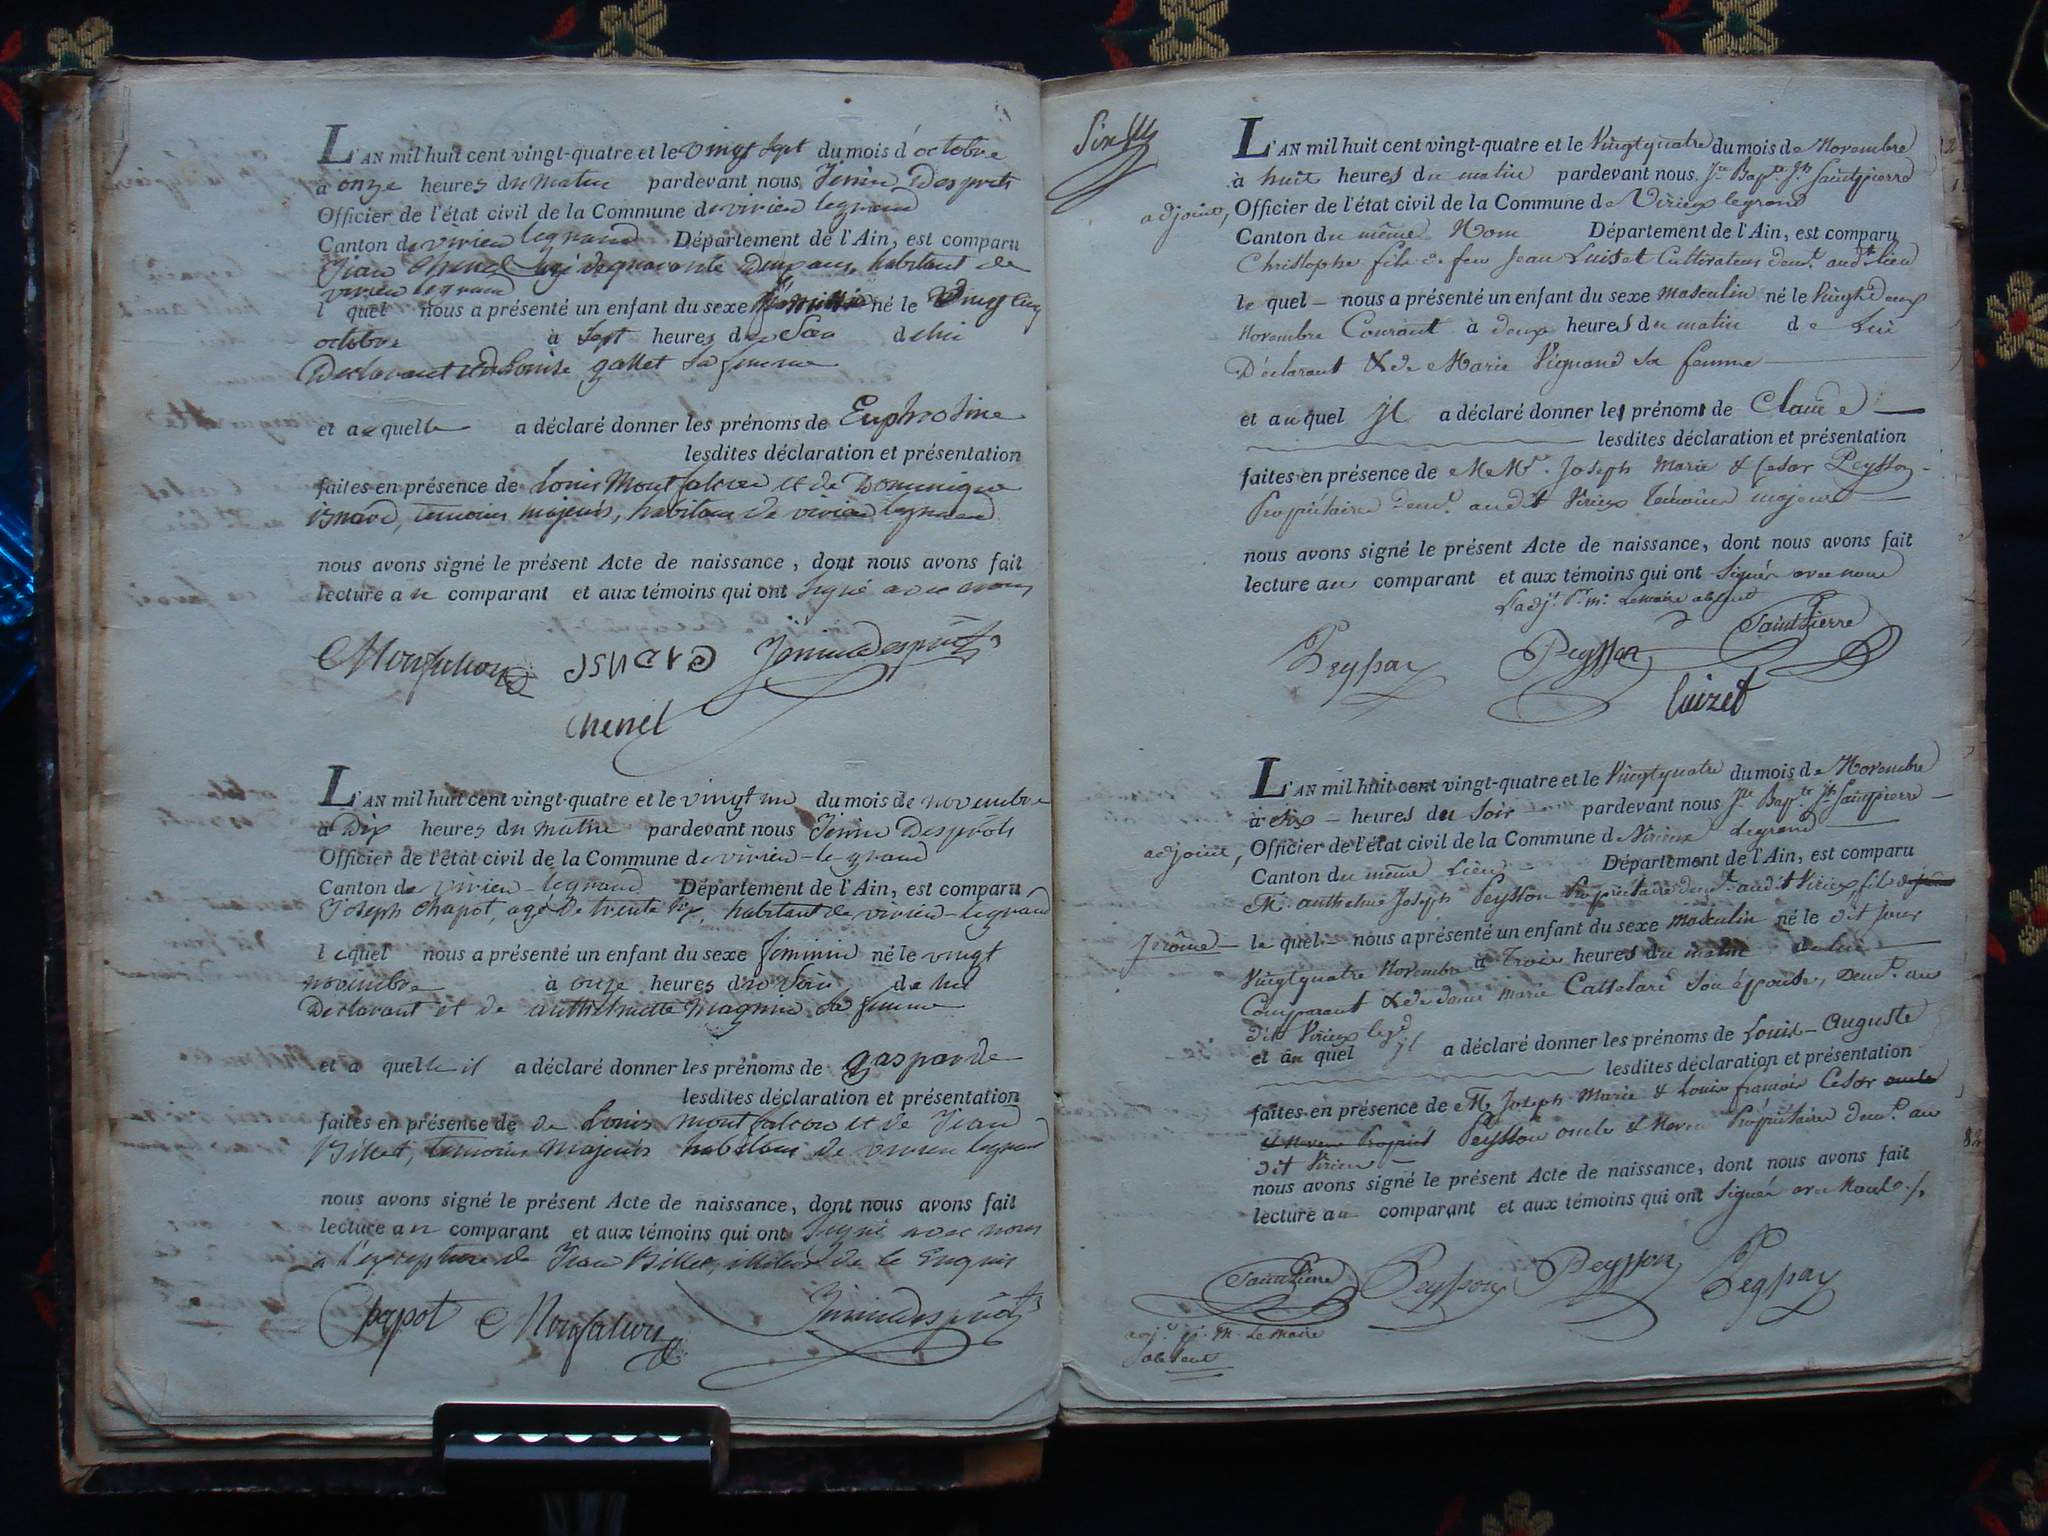 L'AN mil huit cent vingt-quatre et le vingt sept du mois d'octobre
à onze heures du matin pardevant nous Jenin Desprôts
Officier de l'état civil de la Commune de virieu legrand
Canton de virieu legrand Département de l'Ain, est comparu
Jean Chenel agé de quarante deux ans, habitant de
virieu legrand
l quel nous a présenté un enfant du sexe féminin né le vingt cinq
octobre à sept heures du soir de lui
Declarant et de Louise gallet sa femme
et a quelle a déclaré donner les prénoms de Euphrosine
lesdites déclaration et présentation
faites en présence de Louis Montfalcon et de Dominique
isnard, temoins majeurs, habitans de virieu legrand
nous avons signé le présent Acte de naissance, dont nous avons fait
lecture au comparant et aux témoins qui ont signé avec nous
Monfalcon isnard Jenin Desprôts
chenel
L'AN mil huit cent vingt-quatre et le vingt un du mois de novembre
à Dix heures du matin pardevant nous Jenin Desprôts
Officier de l'état civil de la Commune de virieu-le-grand
Canton de virieu-legrand Département de l'Ain, est comparu
Joseph Chapot, agé de trente six, habitant de virieu-legrand
lequel nous a présenté un enfant du sexe féminin né le vingt
novembre à onze heures du soir de lui
Declarant et de anthelmette magnin sa femme
et a quelle il a déclaré donner les prénoms de gasparde
lesdites déclaration et présentation
faites en présence de de Louis montfalcon et de Jean
Billet, temoins majeurs habitans de virieu legrand
nous avons signé le présent Acte de naissance, dont nous avons fait
lecture au comparant et aux témoins qui ont signé avec nous
a l'exception de Jean Billet, illitéré de ce Enquis
Chapot Monfalcon Jenin Desprôts
Six
L'AN mil huit cent vingt-quatre et le Vingtquatre du mois de Novembre
à huit heures du matin pardevant nous Jn Bapte Jh Saintpierre
adjoint, Officier de l'état civil de la Commune de Virieux legrand
Canton du même Nom Département de l'Ain, est comparu
Christophe fils de feu Jean Luiset Cultivateur demt audt lieu
le quel nous a présenté un enfant du sexe masculin né le Vingtdeux
Novembre Courant à deux heures du matin de Lui
Déclarant & de Marie Vignand sa femme
et au quel jl a déclaré donner les prénoms de Claude
lesdites déclaration et présentation
faites en présence de MMrs Joseph Marie & Cesar Peysson
Propriétaires demt audit Virieux témoins majeurs
nous avons signé le présent Acte de naissance, dont nous avons fait
lecture au comparant et aux témoins qui ont signés avec nous
L'adjt pr mr Lemaire absent
Peysson Peysson Saintpierre
Luizet
L'AN mil huit cent vingt-quatre et le Vingtquatre du mois de Novembre
à six heures du soir pardevant nous Jn Bapte Jh Saintpierre
adjoint, Officier de l'état civil de la Commune de Virieux Legrand
Canton du même Lieu Département de l'Ain, est comparu
M. anthelme Joseph Peysson Propriétaire demt audit Virieux, fils de
Jerôme le quel nous a présenté un enfant du sexe masculin né le dit jour
Vingtquatre Novembre à Trois heures du matin de lui
Comparant & de dame marie Cattelard son épouse, demt au
dit Virieux legd
et au quel jl a déclaré donner les prénoms de Louis-Auguste
lesdites déclaration et présentation
faites en présence de M. Joseph Marie & Louis françois Cesar oncle
& Neveu Propriét Peysson oncle & Neveu Propriétaire demt au
dit Virieu
nous avons signé le présent Acte de naissance, dont nous avons fait
lecture au comparant et aux témoins qui ont signés avec Nous
Saintpierre Peysson Peysson Peysson
adjt pr M. Le Maire
absent